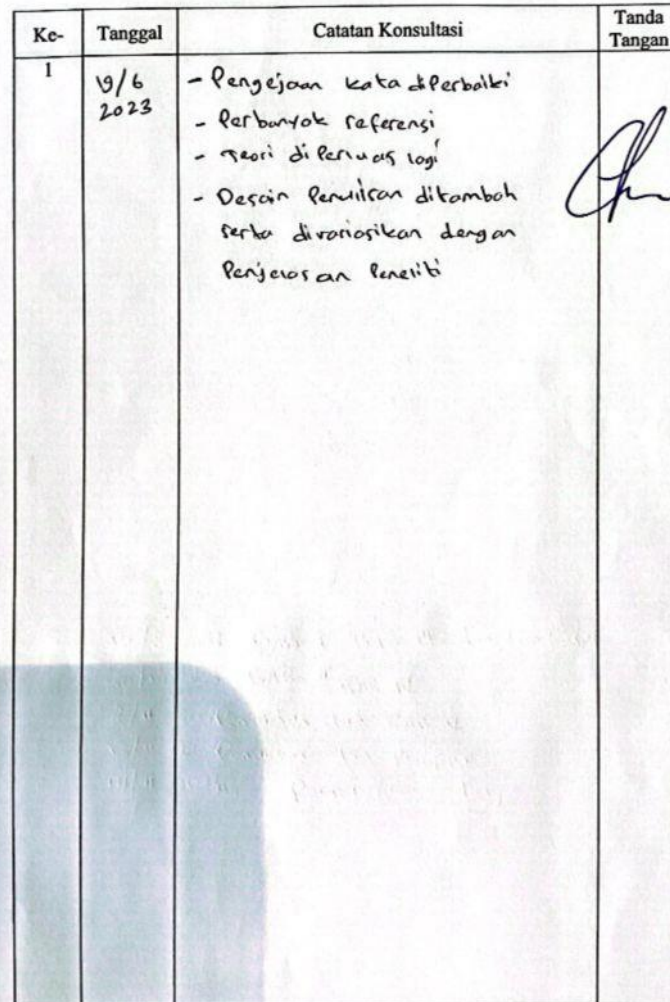 Ke- Tanggal Catatan Konsultasi Tanda Tangan
1 19/6 2023
- Pengejaan kata diperbaiki
- Perbanyak referensi
- Teori diperluas lagi
- Desain Penulisan ditambah
serta divariasikan dengan
Penjelasan Peneliti